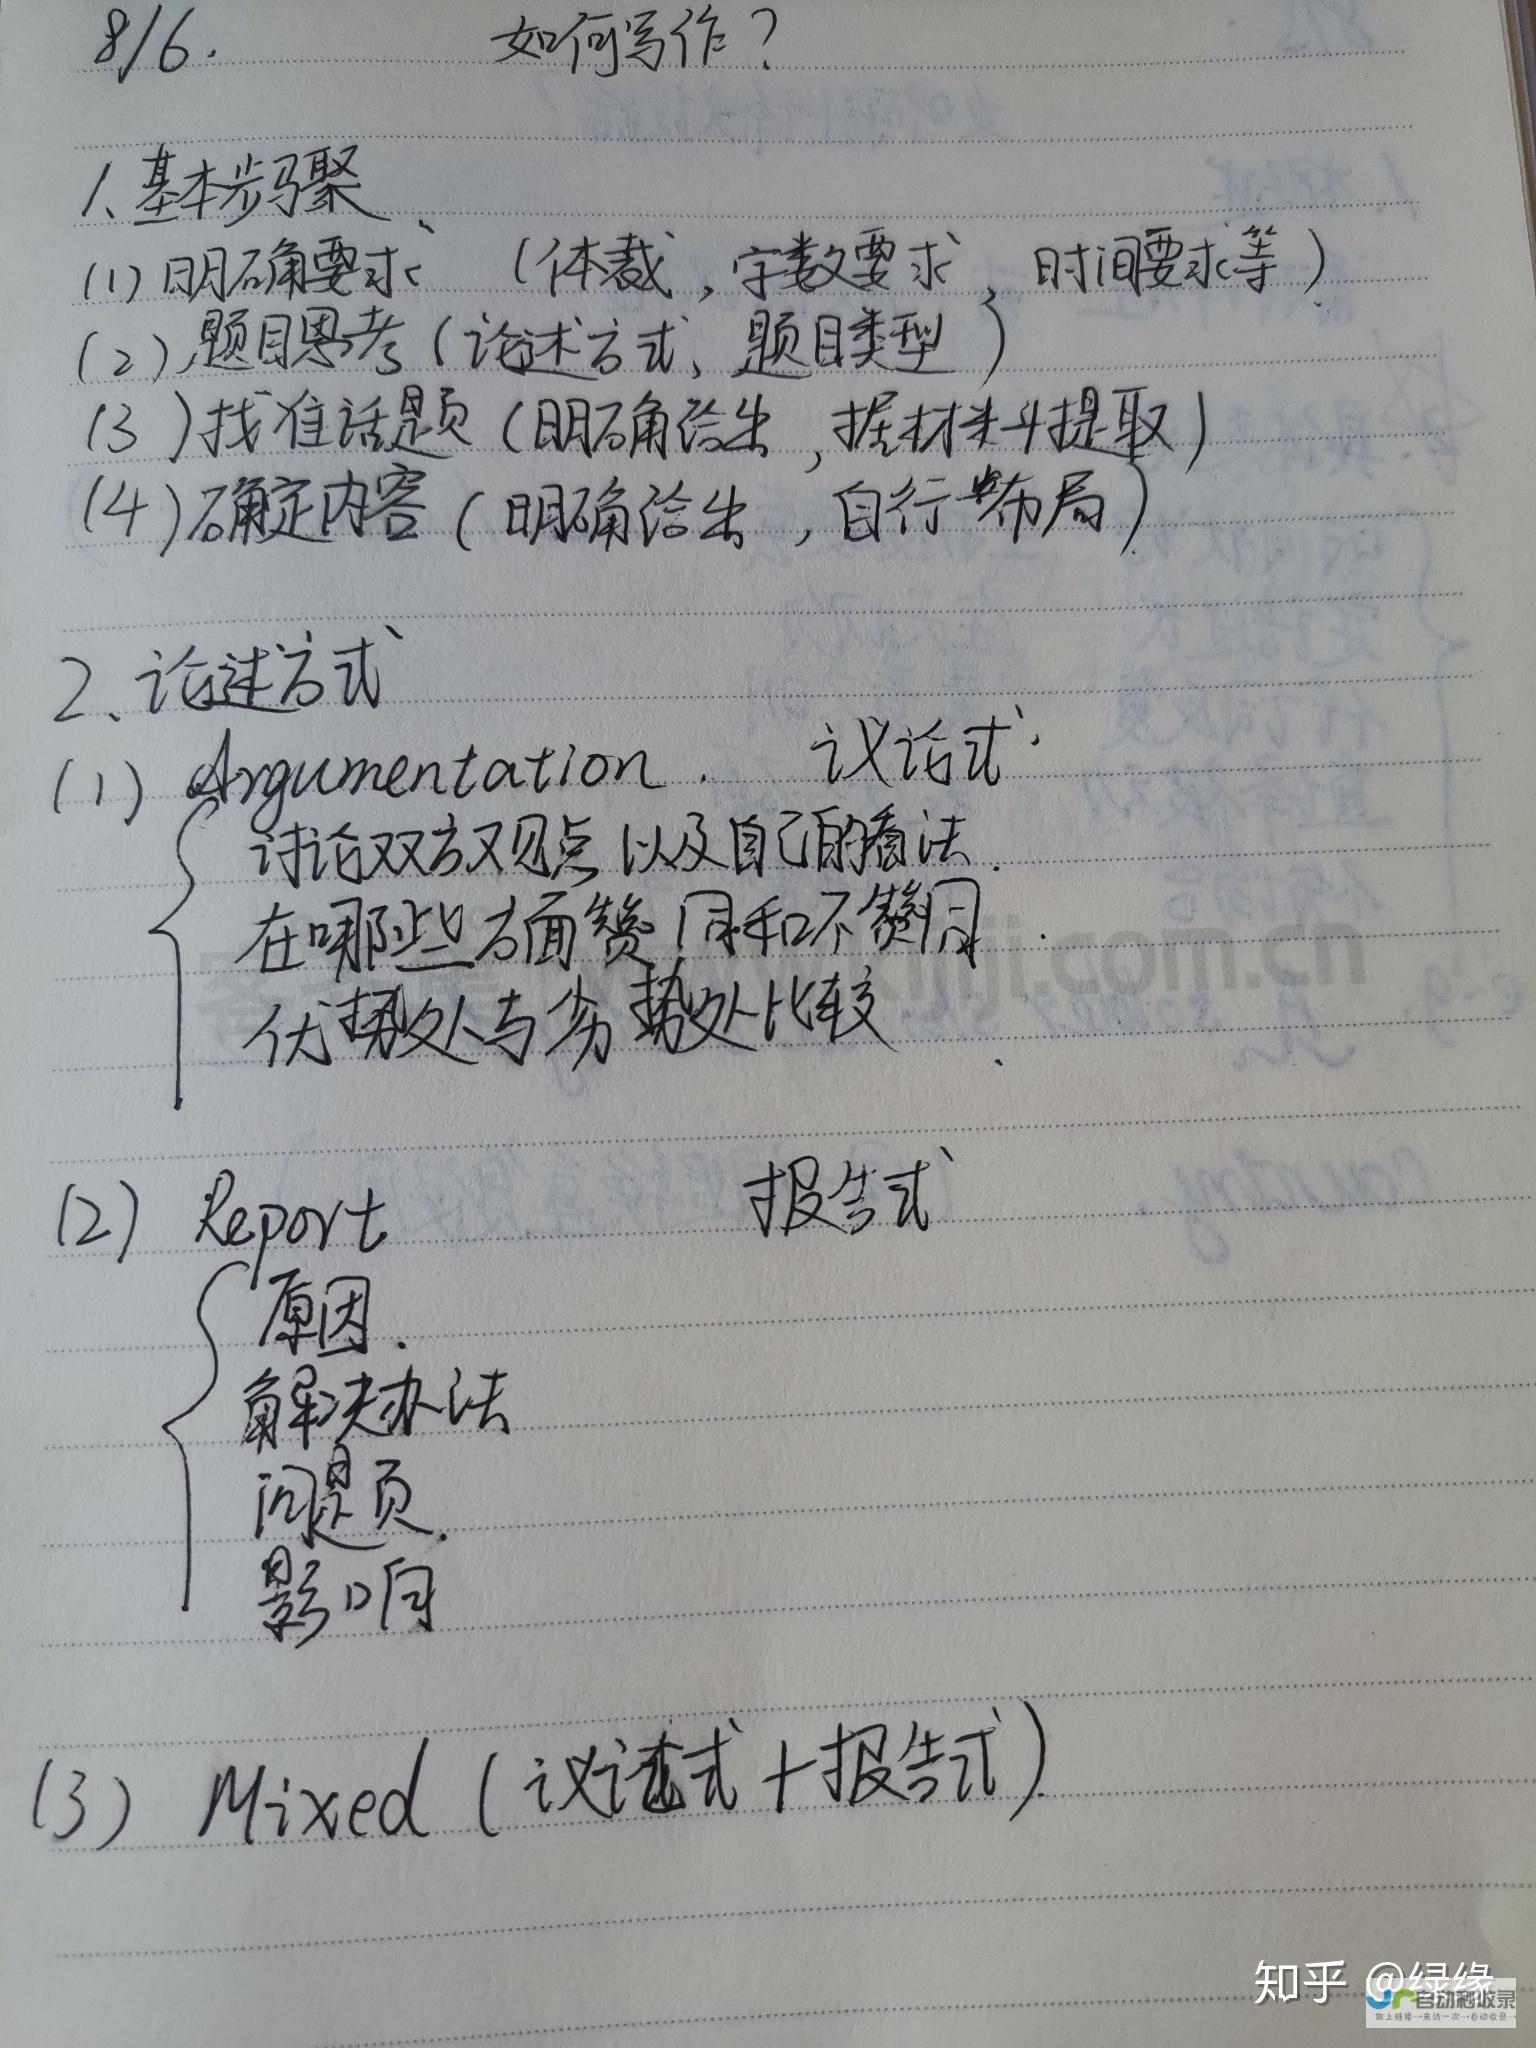 8/6. 如何写作?
1、基本步骤
(1)明确要求 (体裁,字数要求,时间要求等)
(2)题目思考(论述方式、题目类型)
(3)找准话题(明确给出,据材料提取)
(4)确定内容(明确给出,自行布局)
2、论述方式
(1) Argumentation. 议论式
讨论双方观点以及自己的看法.
在哪些方面赞同和不赞同.
优势处与劣势处比较.
(2) Report 报告式
原因.
解决办法
问题.
影响
(3) Mixed (议论式+报告式).
知乎 @绿缘
自动秒收录
做上链接→来访一次→自动收录